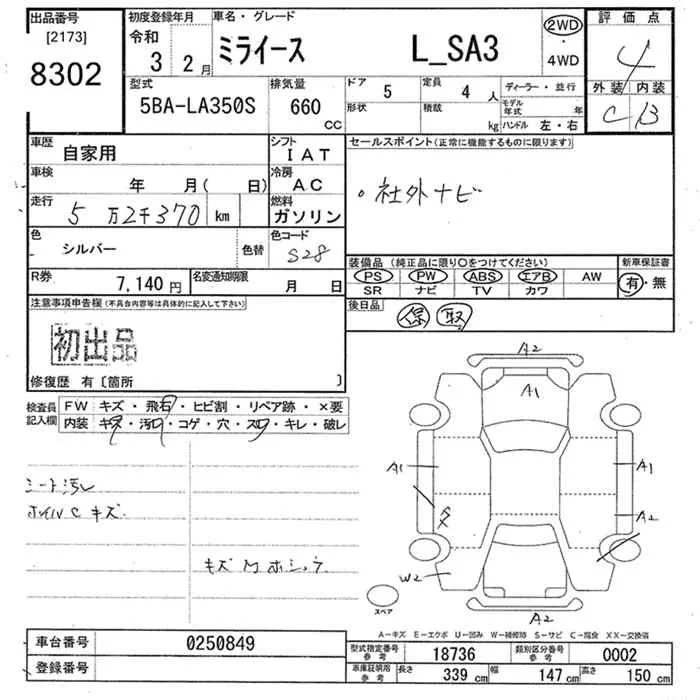 出品番号 初度登録年月 車名・グレード 2WD 評価点
[2173] 令和 3 2月 ミライース L_SA3 ・ 4
8302 4WD
外装 内装
C B
型式 排気量 ドア 5 定員 4人 ディーラー・並行
5BA-LA350S 660 cc 形状 積載 kg モデル年式 年
ハンドル 左・右
車歴 自家用 シフト IAT セールスポイント(正常に機能するものに限ります)
車検 年 月( 日) 冷房 AC 。社外ナビ
走行 5万2千370 km 燃料 ガソリン
色 シルバー 色替 色コード S28
装備品 (純正品に限り○をつけてください) 新車保証書
PS PW ABS エアB AW 有・無
SR ナビ TV カワ
R券 7,140円 名変通知期限 月 日
注意事項申告欄(不具合内容等は具体的に記入して下さい) 後日品
保 取
初出品
修復歴 有〔箇所 〕
検査員記入欄 FW キズ・飛石・ヒビ割・リペア跡・×要
内装 キズ・汚れ・コゲ・穴・スレ・キレ・破レ
A2
A1
A1 A1
A2
W2
A2
シート汚レ
ホイルC キズ
キズ
スペア
A-キズ E-エクボ U-凹み W-補修跡 S-サビ C-腐食 XX-交換済
車台番号 0250849
登録番号
型式指定番号 参考 18736 類別区分番号 参考 0002
車庫証明用 参考 長さ 339 cm 幅 147 cm 高さ 150 cm